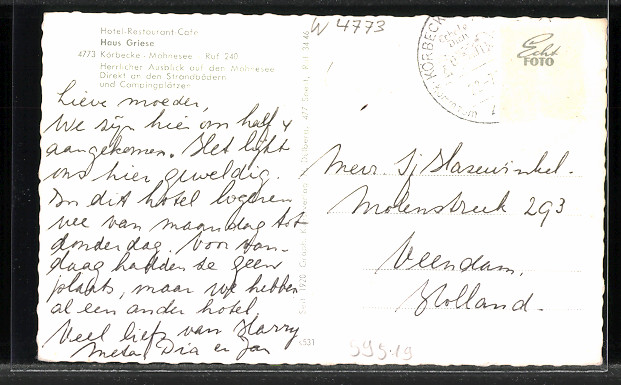 Hotel-Restaurant-Cafe
Haus Griese
4773 Körbecke - Möhnesee Ruf 240
Herrlicher Ausblick auf den Möhnesee
Direkt an den Strandbädern
und Campingplätzen
Lieve moeder,
We zijn hier om half 4
aangekomen. Het lijkt
ons hier geweldig.
In dit hotel logeren
we van maandag tot
donderdag. Voor van-
daag hadden ze geen
plaats, maar we hebben
al een ander hotel.
Veel liefs van Harry
Meta Dia en Jan
W 4773
KÖRBECKE
Echt
FOTO
Mevr. Sj Hazewinkel.
Molenstreek 293
Veendam.
Holland.
595.19